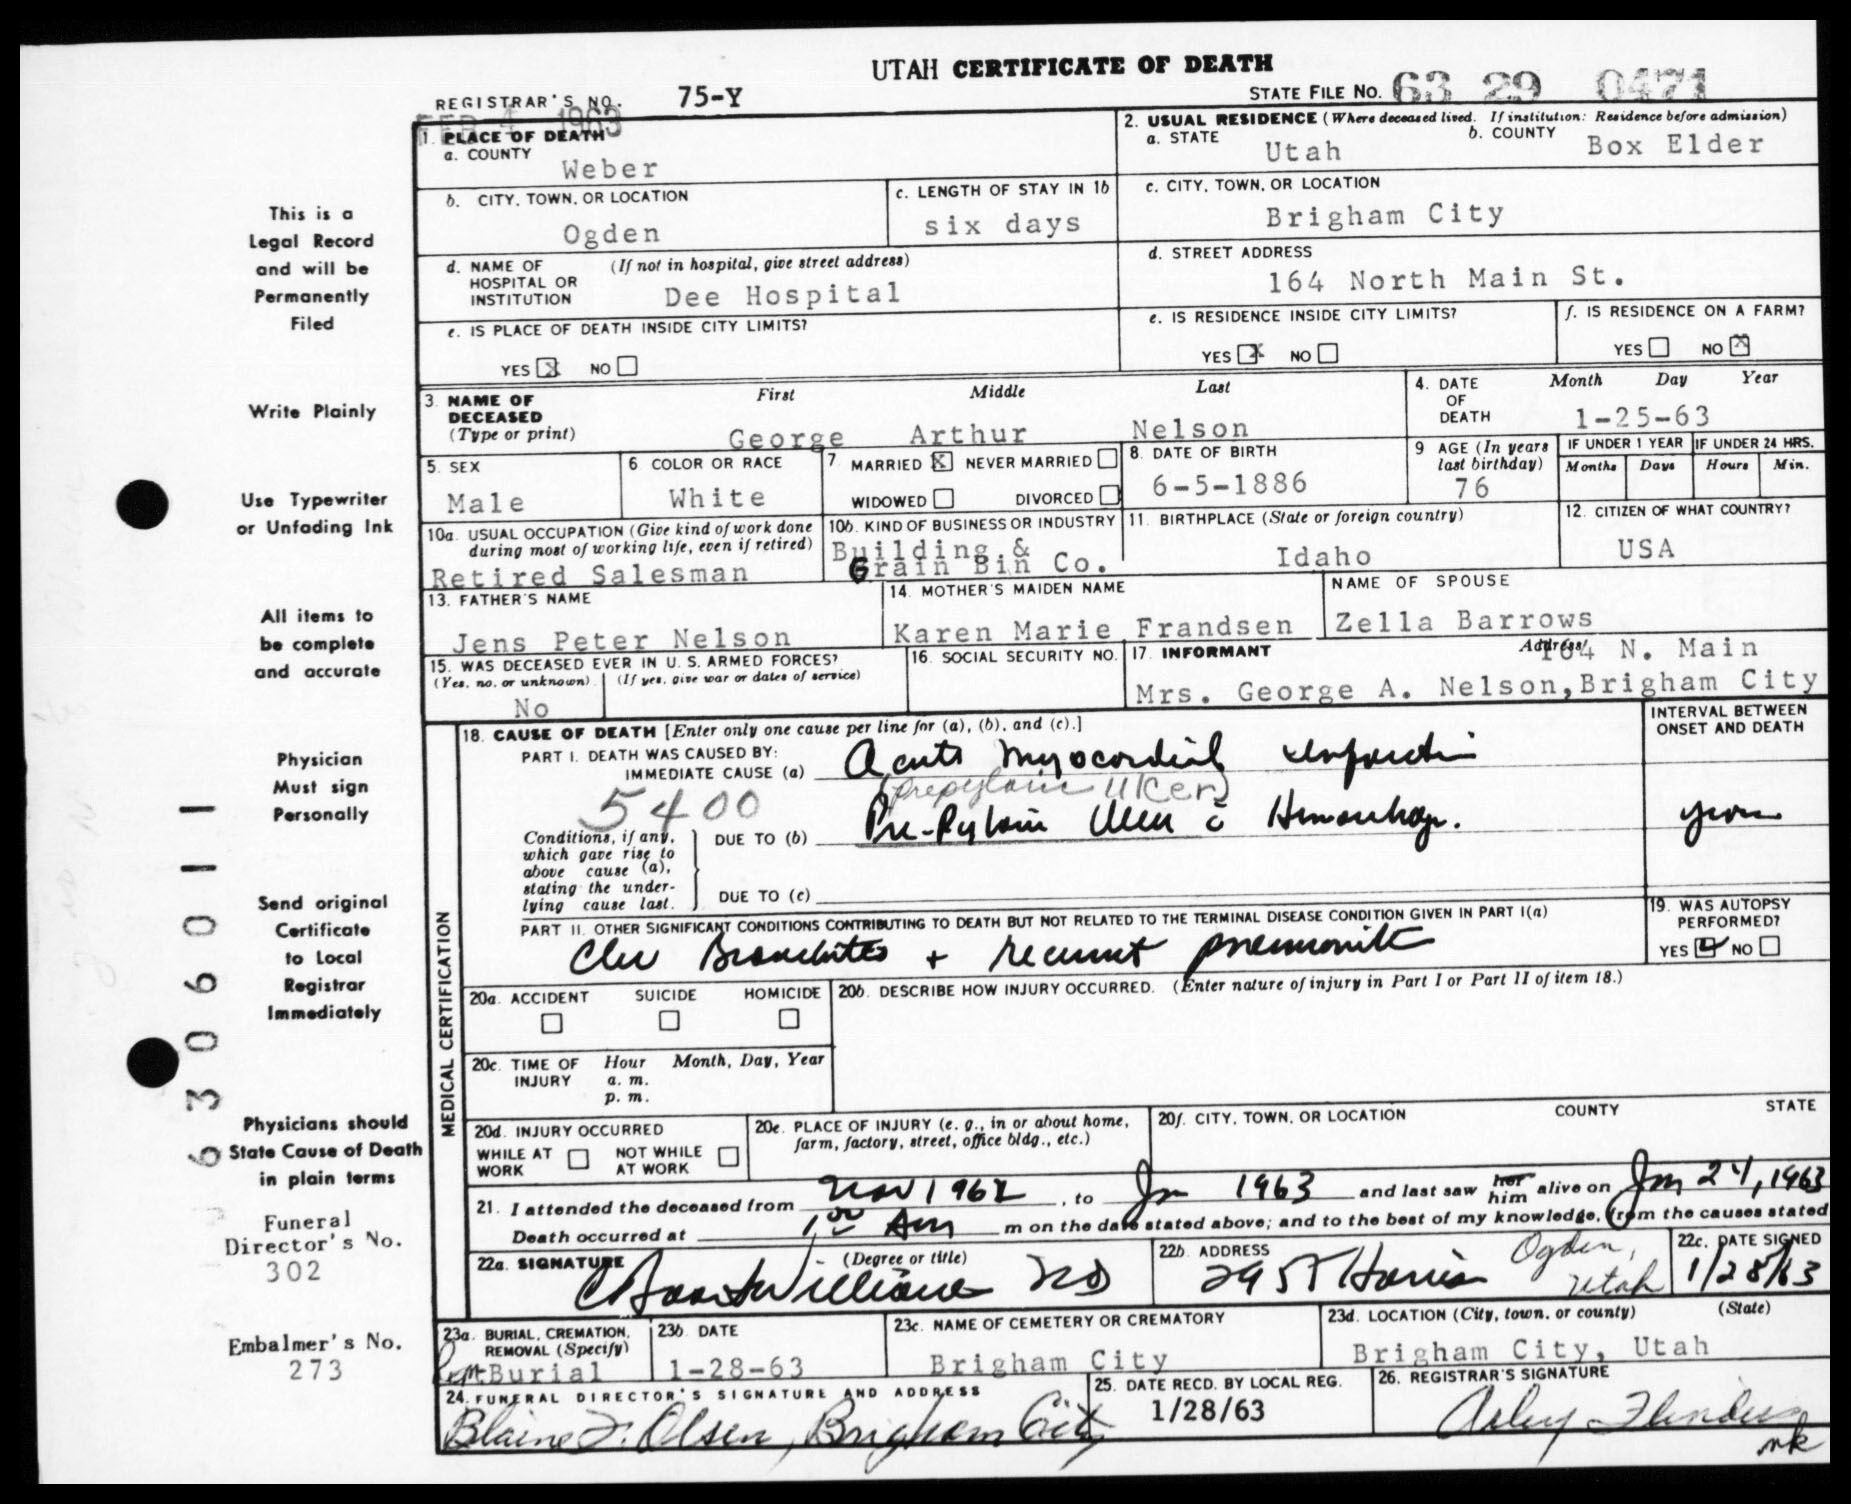 UTAH CERTIFICATE OF DEATH
REGISTRAR'S NO. 75-Y
STATE FILE NO. 63 29 0471
FEB 4 1963
1. PLACE OF DEATH
a. COUNTY
Weber
2. USUAL RESIDENCE (Where deceased lived. If institution: Residence before admission)
a. STATE Utah
b. COUNTY Box Elder
b. CITY, TOWN, OR LOCATION
Ogden
c. LENGTH OF STAY IN 1b
six days
c. CITY, TOWN, OR LOCATION
Brigham City
d. NAME OF HOSPITAL OR INSTITUTION (If not in hospital, give street address)
Dee Hospital
d. STREET ADDRESS
164 North Main St.
e. IS PLACE OF DEATH INSIDE CITY LIMITS?
YES X NO
e. IS RESIDENCE INSIDE CITY LIMITS?
YES X NO
f. IS RESIDENCE ON A FARM?
YES NO X
3. NAME OF DECEASED (Type or print)
First Middle Last
George Arthur Nelson
4. DATE OF DEATH Month Day Year
1-25-63
5. SEX
Male
6. COLOR OR RACE
White
7. MARRIED X NEVER MARRIED
WIDOWED DIVORCED
8. DATE OF BIRTH
6-5-1886
9 AGE (In years last birthday)
76
IF UNDER 1 YEAR
Months Days
IF UNDER 24 HRS.
Hours Min.
10a. USUAL OCCUPATION (Give kind of work done during most of working life, even if retired)
Retired Salesman
10b. KIND OF BUSINESS OR INDUSTRY
Building &
Grain Bin Co.
11. BIRTHPLACE (State or foreign country)
Idaho
12. CITIZEN OF WHAT COUNTRY?
USA
13. FATHER'S NAME
Jens Peter Nelson
14. MOTHER'S MAIDEN NAME
Karen Marie Frandsen
NAME OF SPOUSE
Zella Barrows
15. WAS DECEASED EVER IN U. S. ARMED FORCES?
(Yes, no, or unknown) (If yes, give war or dates of service)
No
16. SOCIAL SECURITY NO.
17. INFORMANT Address
164 N. Main
Mrs. George A. Nelson, Brigham City
MEDICAL CERTIFICATION
18. CAUSE OF DEATH [Enter only one cause per line for (a), (b), and (c).]
INTERVAL BETWEEN ONSET AND DEATH
PART I. DEATH WAS CAUSED BY:
IMMEDIATE CAUSE (a) Acute myocardial infarction
5400
(prepyloric Ulcer)
Conditions, if any, which gave rise to above cause (a), stating the underlying cause last.
DUE TO (b) Pre-Pyloric Ulcer c̄ Hemorrhage.
years
DUE TO (c)
PART II. OTHER SIGNIFICANT CONDITIONS CONTRIBUTING TO DEATH BUT NOT RELATED TO THE TERMINAL DISEASE CONDITION GIVEN IN PART I(a)
Bronchitis + recurrent pneumonitis
19. WAS AUTOPSY PERFORMED?
YES NO
20a. ACCIDENT SUICIDE HOMICIDE
20b. DESCRIBE HOW INJURY OCCURRED. (Enter nature of injury in Part I or Part II of item 18.)
20c. TIME OF INJURY Hour Month, Day, Year
a. m.
p. m.
20d. INJURY OCCURRED
WHILE AT WORK NOT WHILE AT WORK
20e. PLACE OF INJURY (e. g., in or about home, farm, factory, street, office bldg., etc.)
20f. CITY, TOWN, OR LOCATION COUNTY STATE
21. I attended the deceased from Nov 1962, to Jan 1963 and last saw her him alive on Jan 24, 1963
Death occurred at 1:00 Am m on the date stated above; and to the best of my knowledge, from the causes stated
22a. SIGNATURE (Degree or title)
Williams MD
22b. ADDRESS
Harrison Ogden, Utah
22c. DATE SIGNED
1/28/63
23a. BURIAL, CREMATION, REMOVAL (Specify)
Burial
23b. DATE
1-28-63
23c. NAME OF CEMETERY OR CREMATORY
Brigham City
23d. LOCATION (City, town, or county) (State)
Brigham City, Utah
24. FUNERAL DIRECTOR'S SIGNATURE AND ADDRESS
Blaine F. Olsen, Brigham City
25. DATE RECD. BY LOCAL REG.
1/28/63
26. REGISTRAR'S SIGNATURE
nk
This is a
Legal Record
and will be
Permanently
Filed
Write Plainly
Use Typewriter
or Unfading Ink
All items to
be complete
and accurate
Physician
Must sign
Personally
Send original
Certificate
to Local
Registrar
Immediately
Physicians should
State Cause of Death
in plain terms
Funeral
Director's No.
302
Embalmer's No.
273
6306011